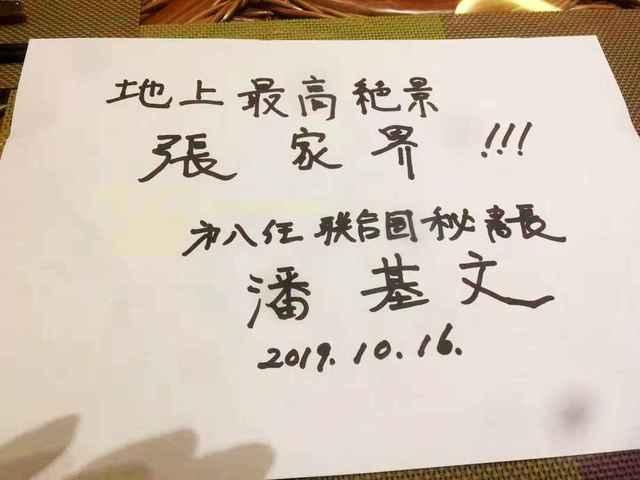 地上最高絶景
張家界 !!!
才八任 联合国秘書長
潘基文
2019.10.16.